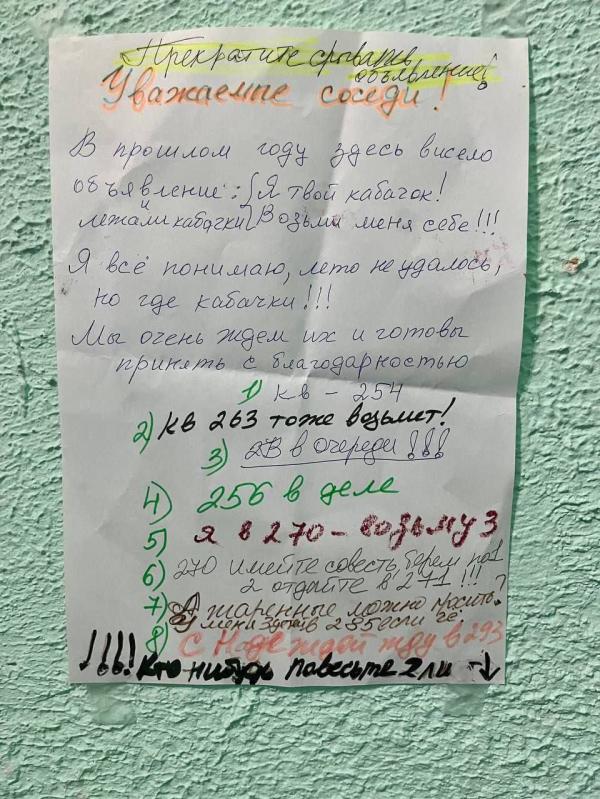 Прекратите срывать
объявление!
Уважаемые соседи!
В прошлом году здесь висело
объявление: Я твой кабачок!
и лежали кабачки Возьми меня себе!!!
Я всё понимаю, лето не удалось,
но где кабачки!!!
Мы очень ждем их и готовы
принять с благодарностью
1) кв - 254
2) кв 263 тоже возьмет!
3) в очереди!!!
4) 256 в деле
5) я в 270 - возьму 3
6) 270 имейте совесть, берем по 1
2 отдайте в 271!!!
7) А жаренные можно просить?
У меня в 295 если че.
8) С Надеждой жду в 293
!!!! Кто-нибудь повесьте 2 ли